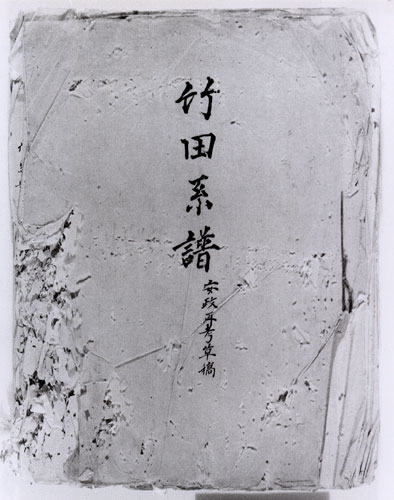 竹田系譜
安政再考草稿